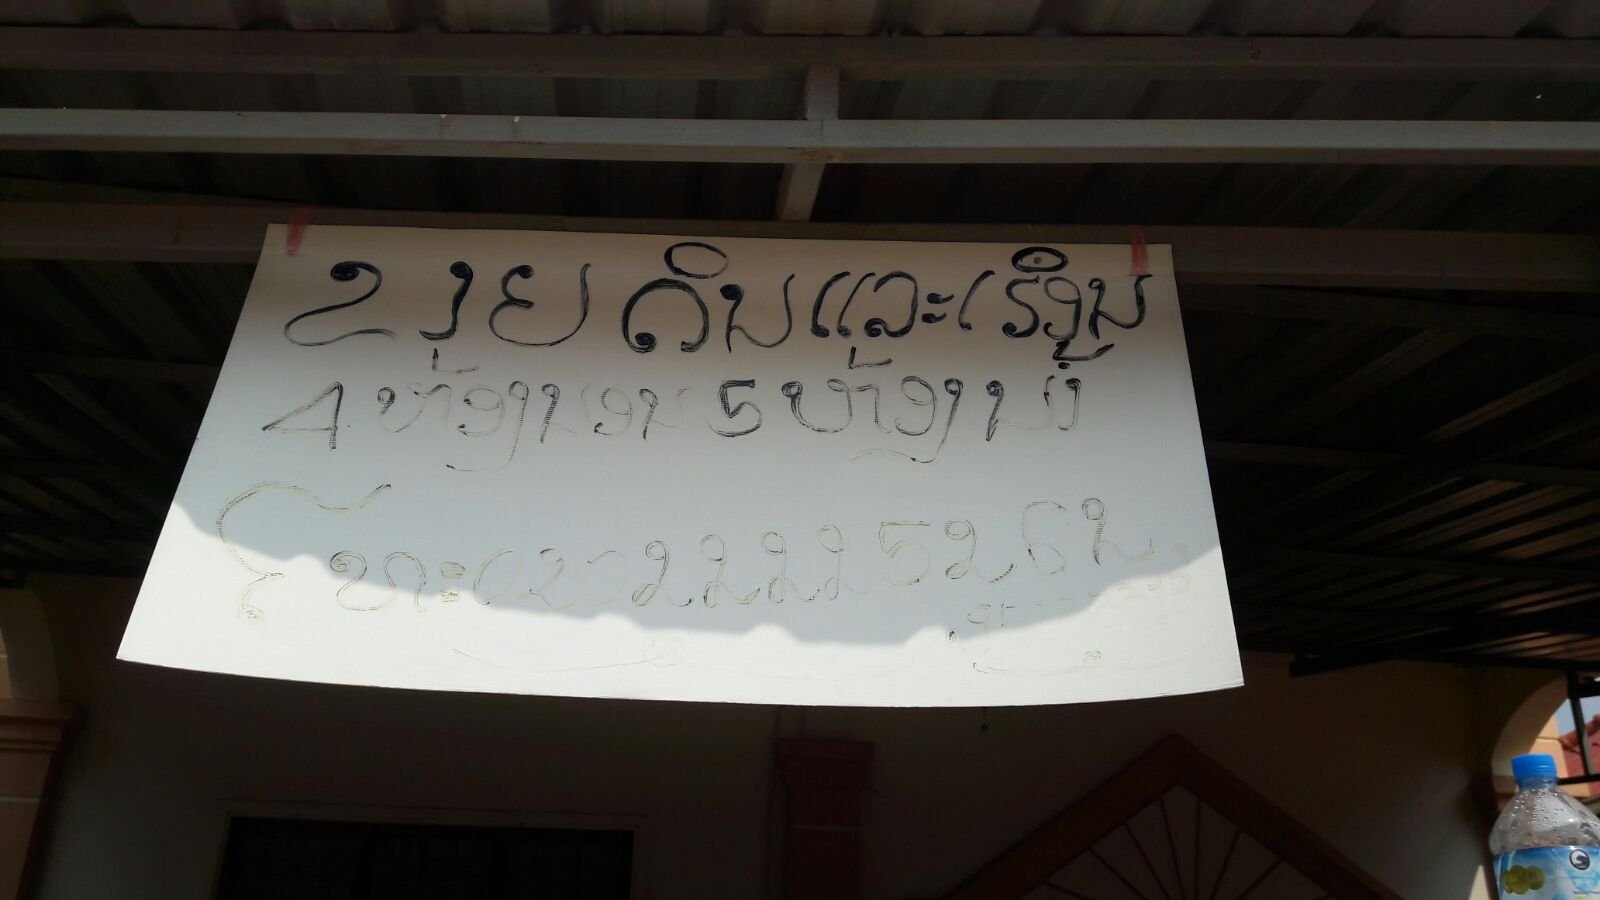 ຂາຍດິນແລະເຮືອນ
4 ຫ້ອງນອນ 5 ຫ້ອງນ້ຳ
ໂທະ: 020 2222 5262